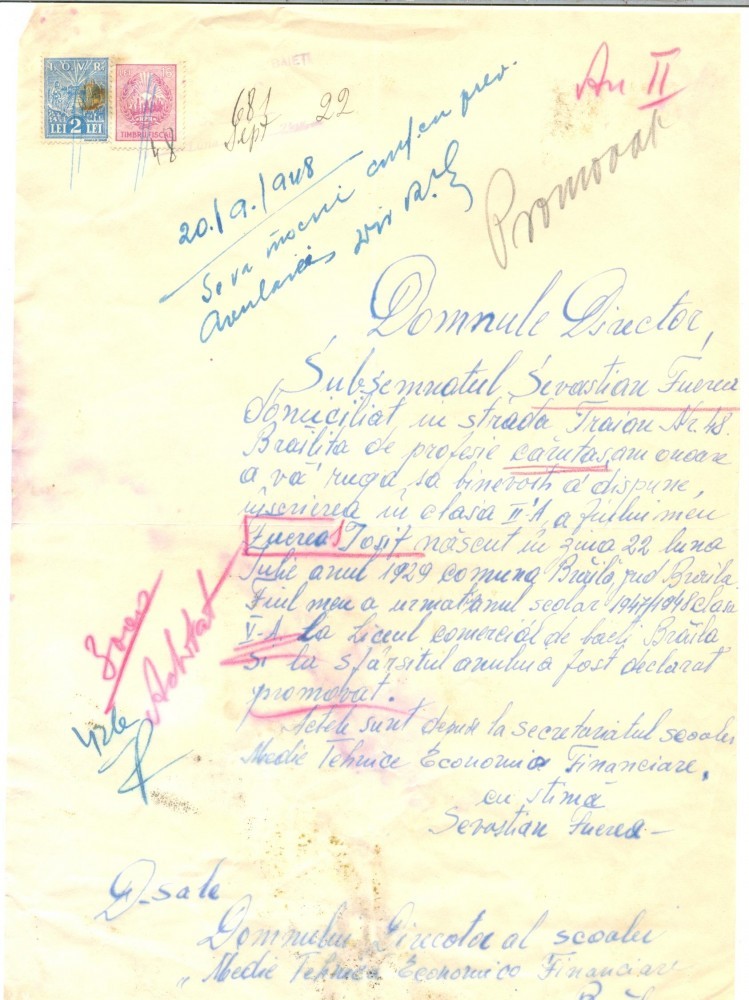 I.O.V.R.
LEI 2 LEI
TIMBRU FISCAL
48
681
Sept 22
An II
Promovat
20/9/948
Se va înscrie conf. cu prev.
Domnule Director,
Subsemnatul Sevastian Fuerea
domiciliat in strada Traian Nr. 48.
Brăilița de profesie căruțaș am onoare
a vă ruga să binevoiți a dispune,
înscrierea in clasa II-A, a fiului meu
Fuerea Iosif născut in ziua 22 luna
Iulie anul 1929 comuna Brăila jud Brăila.
Fiul meu a urmat anul școlar 1947/1948 clasa
V-A la Liceul comercial de baeți Brăila
și la sfârșitul anului a fost declarat
promovat.
Actele sunt depuse la secretariatul scoalei
Medie Tehnice Economico Financiare.
cu stimă
Sevastian Fuerea
Achitat
D-sale
Domnului Director al scoalei
„Medie Tehnica Economico Financiare